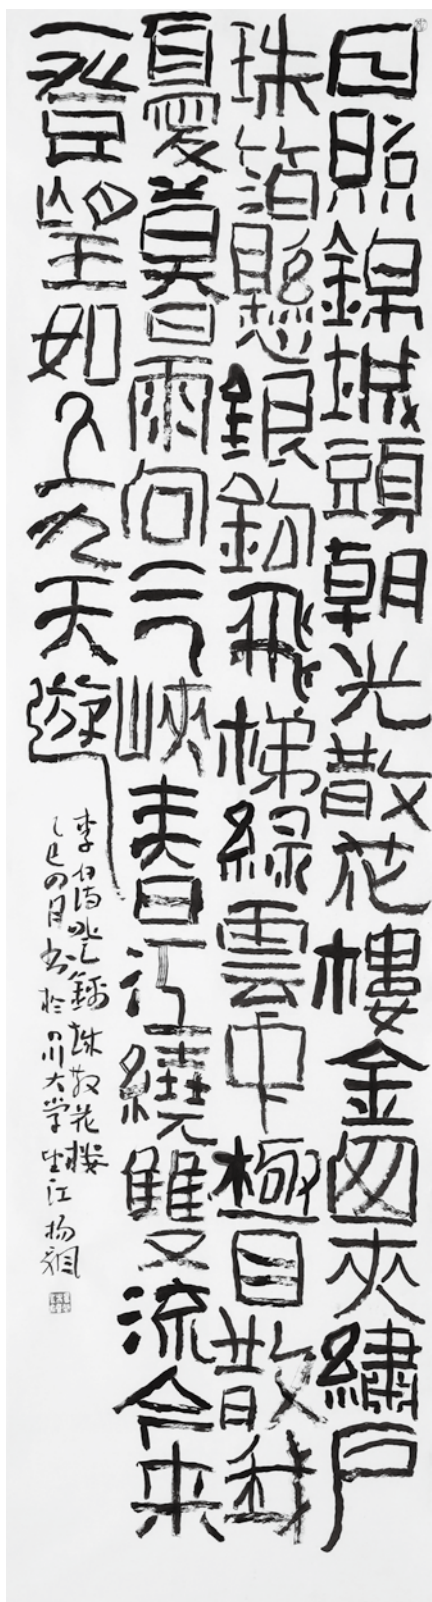 日照錦城頭朝光散花樓金囱夾繡戶
珠箔懸銀鉤飛梯綠雲中極目散我
憂暮雨向三峽春江繞雙流今来
一登望如上九天遊
李白诗登錦城散花楼
乙巳四月书於四川大学望江